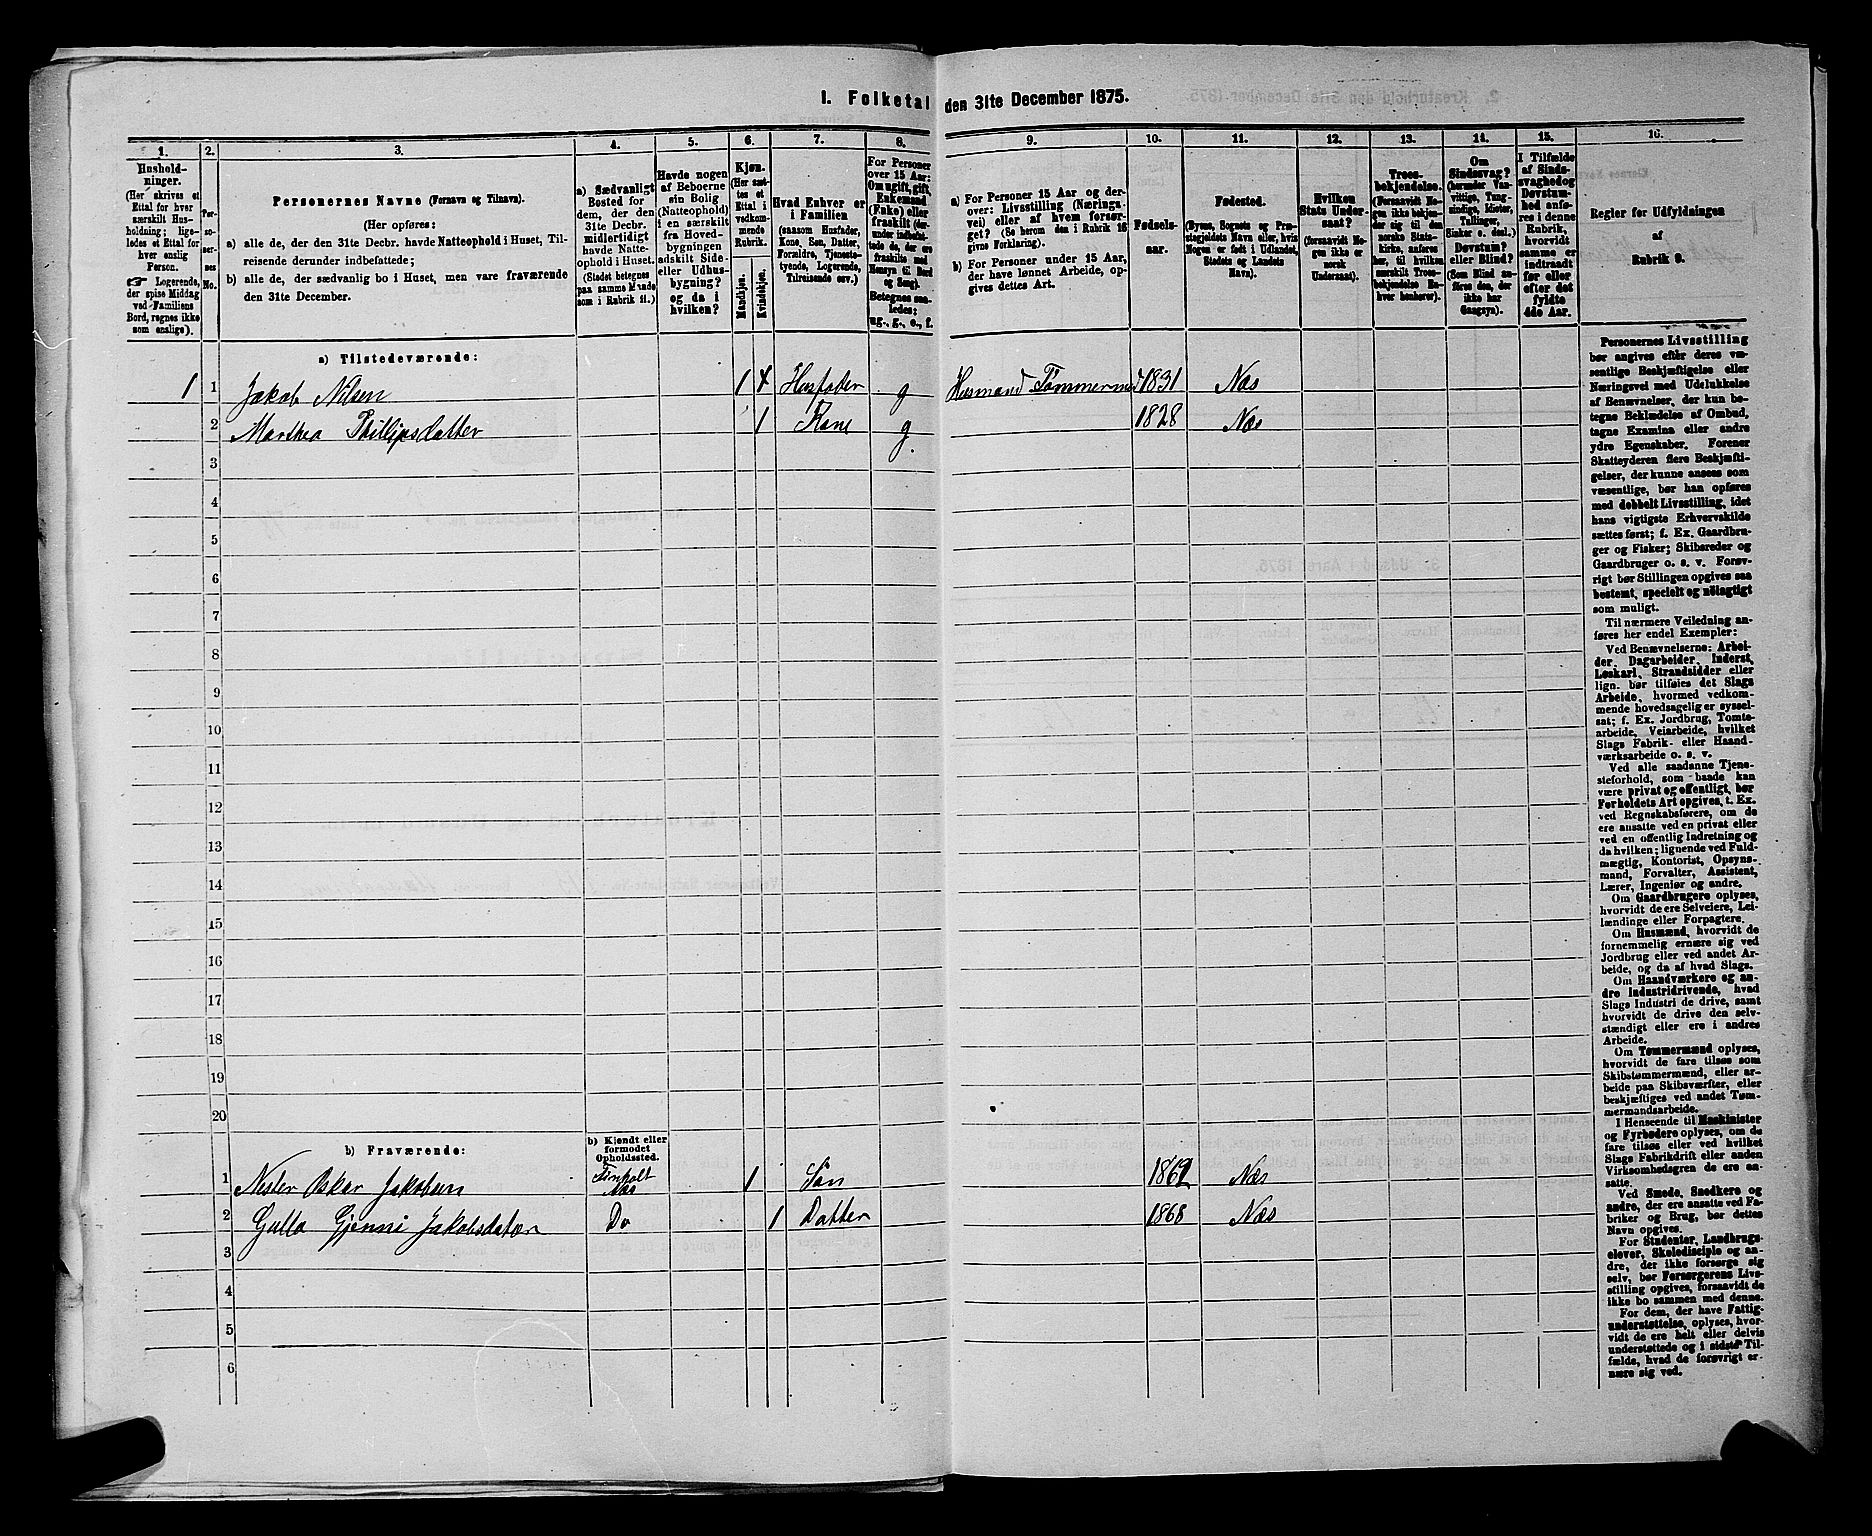 1. Folketal den 31te December 1875.
1. 2. 3. 4. 5. 6. 7. 8. 9. 10. 11. 12. 13. 14. 15. 16.
Hushold-
ninger.
(Her skrives et
Ettal for hver
særskilt Hus-
holdning; lige-
ledes et Ettal for
hver enslig
Person.
☞ Logerende,
der spise Middag
ved Familiens
Bord, regnes ikke
som enslige).
Per-
so-
ner-
nes
No.
Personernes Navne (Fornavn og Tilnavn).
(Her opføres:
a) alle de, der den 31te Decbr. havde Natteophold i Huset, Til-
reisende derunder indbefattede;
b) alle de, der sædvanlig bo i Huset, men vare fraværende
den 31te December.
a) Sædvanligt
Bosted for
dem, der den
31te Decbr.
midlertidigt
havde Natte-
ophold i Huset.
(Stedet betegnes
paa samme Maade
som i Rubrik 11.)
Havde nogen
af Beboerne
sin Bolig
(Natteophold)
i en særskilt
fra Hoved-
bygningen
adskilt Side-
eller Udhus-
bygning?
og da i
hvilken?
Kjøn.
(Her sæt-
tes et
Ettal i
vedkom-
mende
Rubrik.
Mandkjøn.
Kvindekjøn.
Hvad Enhver er
i Familien
(saasom Husfader,
Kone, Søn, Datter,
Forældre, Tjeneste-
tyende, Logerende,
Tilreisende osv.)
For Personer
over 15 Aar:
Om ugift, gift,
Enkemand
(Enke) eller
fraskilt
Betegnes saa-
ledes:
ug., g., e., f.
a) For Personer 15 Aar og der-
over: Livsstilling (Nærings-
vei) eller af hvem forsør-
get? (Se herom den i Rubrik 16
givne Forklaring).
b) For Personer under 15 Aar,
der have lønnet Arbeide, op-
gives dettes Art.
Fødsels-
aar.
Fødested.
(Byens, Sognets og Præ-
stegjeldets Navn eller, hvis
Nogen er født i Udlandet,
Stedets og Landets
Navn).
Hvilken
Stats Under-
saat?
(forsaavidt No-
gen ikke er
norsk
Undersaat).
Troes-
bekjendelse.
(Forsaavidt No-
gen ikke bekjen-
der sig til den
norske Stats-
kirke, anføres
her, til hvilken
særskilt Troes-
bekjendelse En-
hver henhører).
Om
Sindssvag?
(herunder Van-
vittige, Tung-
sindige, Idioter,
Tullinger,
Sinker o. desl.)
Døvstum?
eller Blind?
(Som Blind an-
føres den, der
ikke har
Gangsyn).
I Tilfælde
af Sinds-
svaghed og
Døvstum-
hed anfø-
res i denne
Rubrik,
hvorvidt
samme er
indtraadt
før eller
efter det
fyldte
4de Aar.
Regler for Udfyldningen
af
Rubrik 9.
a) Tilstedeværende:
1 1 Jakob Nilsen 1 Husfader g Husmand Tømmermd 1831 Næs
2 Marthea Phillipsdatter 1 Kone g. 1828 Næs
3
4
5
6
7
8
9
10
11
12
13
14
15
16
17
18
19
20
b) Fraværende:
b) Kjendt eller
formodet
Opholdssted.
1 Nester Oskar Jakobsen Finholt Næs 1 Søn 1862 Næs
2 Gulla Gjenni Jakobsdatter Do 1 Datter 1868 Næs
3
4
5
6
Personernes Livsstilling
bør angives efter deres væ-
sentlige Beskjæftigelse eller
Næringsvei med Udelukkelse
af Benævnelser, der kun be-
tegne Beklædelse af Ombud,
tagne Examina eller andre
ydre Egenskaber. Forener
Skatteyderen flere Beskjæfti-
gelser, der kunne ansees som
væsentlige, bør han opføres
med dobbelt Livsstilling, idet
hans vigtigste Erhvervskilde
sættes først; f. Ex. Gaardbru-
ger og Fisker; Skibsreder og
Gaardbruger o. s. v. Forøv-
rigt bør Stillingen opgives saa
bestemt, specielt og nöiagtigt
som muligt.
Til nærmere Veiledning an-
føres her endel Exempler:
Ved Benævnelserne: Arbei-
der, Dagarbeider, Inderst,
Løskarl, Strandsidder eller
lign. bør tilføies det Slags
Arbeide, hvormed vedkom-
mende hovedsagelig er syssel-
sat; f. Ex. Jordbrug, Tomte-
arbeide, Veiarbeide, hvilket
Slags Fabrik- eller Haand-
værksarbeide o. s. v.
Ved alle saadanne Tjene-
steforhold, som baade kan
være privat og offentligt, bør
Forholdets Art opgives, t. Ex.
ved Regnskabsførere, om de
ere ansatte ved en privat eller
ved en offentlig Indretning og
da hvilken; lignende ved Fuld-
mægtig, Kontorist, Opsyns-
mand, Forvalter, Assistent,
Lærer, Ingeniør og andre.
Om Gaardbrugere oplyses,
hvorvidt de ere Selveiere, Lei-
lændinge eller Forpagtere.
Om Husmænd, hvorvidt de
fornemmelig ernære sig ved
Jordbrug eller ved andet Ar-
beide, og da af hvad Slags.
Om Haandværkere og an-
dre Industridrivende, hvad
Slags Industri de drive, samt
hvorvidt de drive den selv-
stændigt eller ere i andres
Arbeide.
Om Tømmermænd oplyses,
hvorvidt de fare tilsøs som
Skibstømmermænd, eller ar-
beide paa Skibsværfter, eller
beskjæftiges ved andet Tøm-
mermandsarbeide.
I Henseende til Maskinister
og Fyrbødere oplyses, om de
fare tilsøs eller ved hvilket
Slags Fabrikdrift eller anden
Virksomhedsgren de ere an-
satte.
Ved Smede, Snedkere og
andre, der ere ansatte ved Fa-
briker og Brug, bør dettes
Navn opgives.
For Studenter, Landbrugs-
elever, Skoledisciple og an-
dre, der ikke forsørge sig
selv, bør Forsørgerens Livs-
stilling opgives, forsaavidt de
ikke bo sammen med denne.
For dem, der have Fattig-
understøttelse, oplyses, hvor-
vidt de ere helt eller delvis
understøttede og i sidste Til-
fælde, hvad de forøvrigt er-
nære sig ved.